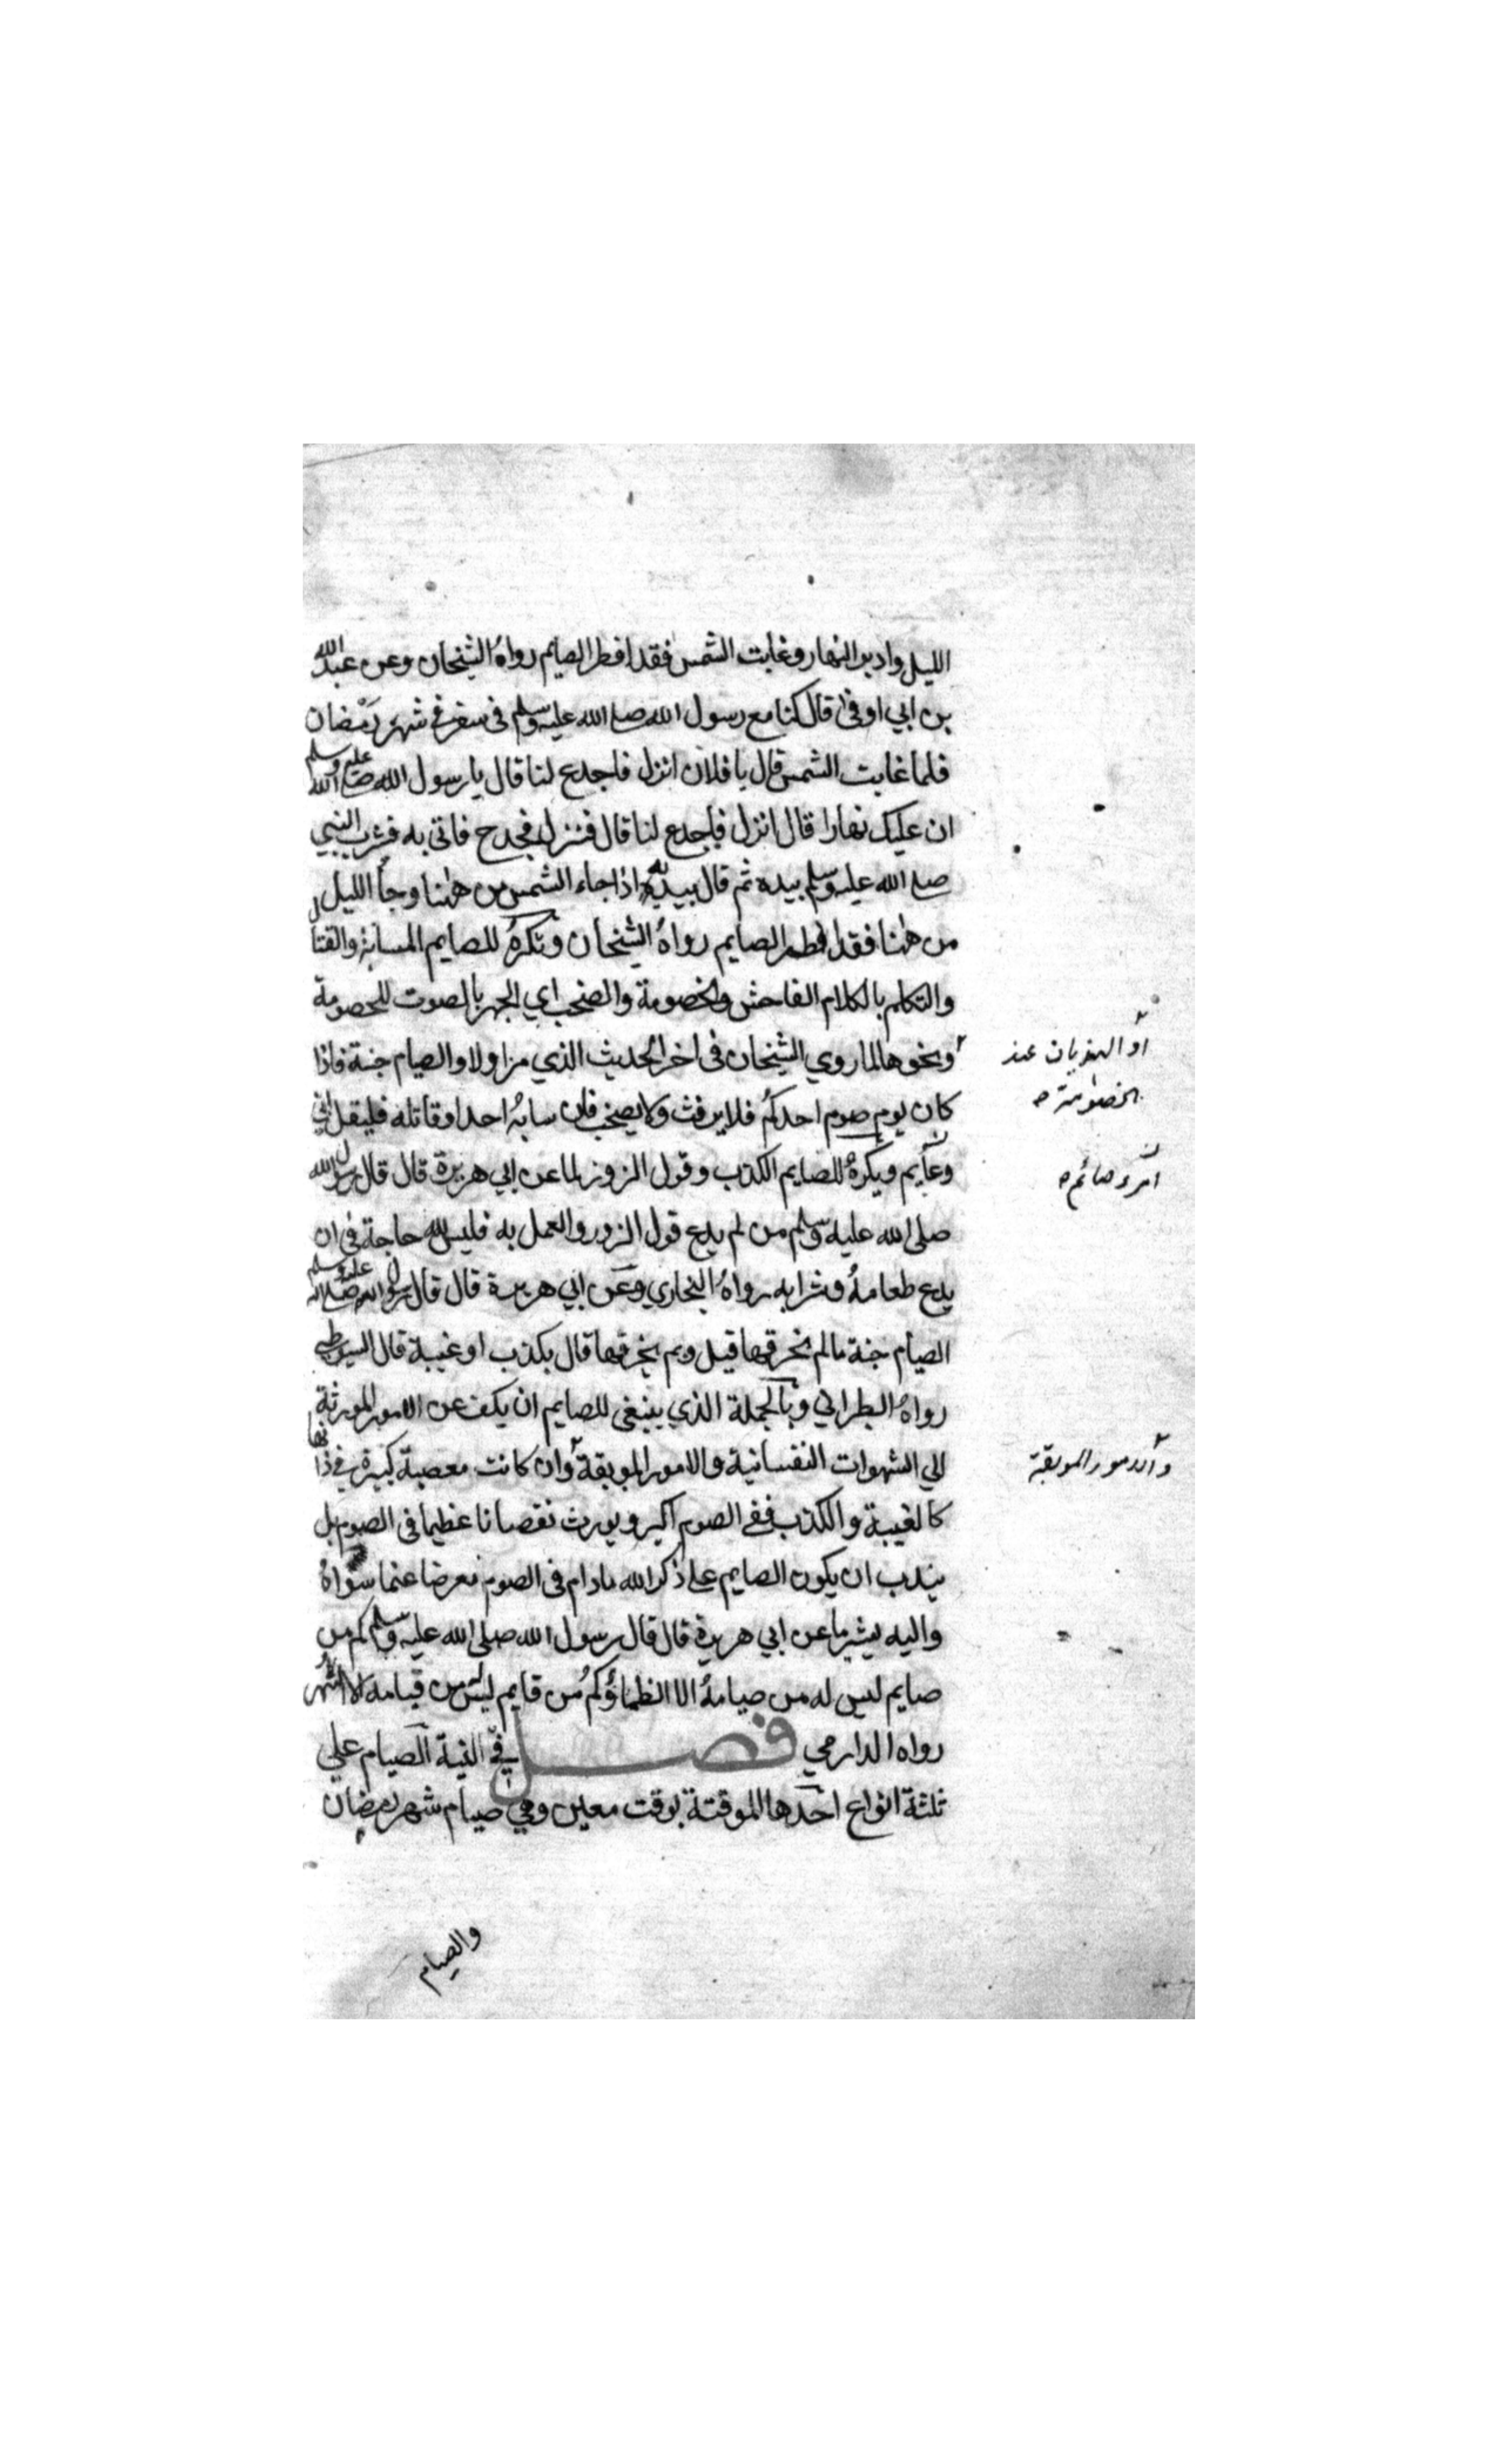 الليل وادبر النهار وغابت الشمس فقد افطر الصايم رواهُ الشيخان وعن عبد الله
بن ابي اوفى قال كنا مع رسول الله صلى الله عليه وسلم فى سفر فى شهر رمضان
فلما غابت الشمس قال يا فلان انزل فاجدع لنا قال يا رسول الله صلى الله عليه وسلم
ان عليك نهارا قال انزل فاجدع لنا قال فنزل فجدح فاتى به فشرب النبي
صلى الله عليه وسلم بيده ثم قال بيديه اذا جاء الشمس من ههنا وجأ الليل
من ههنا فقد افطر الصايم رواهُ الشيخان وتكرهُ للصايم المسابة والقتا
والتكلم بالكلام الفاحش والخصومة والصخب اي الجهر بالصوت للخصومة
او الهذيان عند
الخصومة
ونحوها لما روي الشيخان فى اخر الحديث الذي مر اولا والصيام جنة فاذا
كان يوم صوم احدكم فلا يرفث ولا يصخب فان سابهُ احد او قاتله فليقل اني
امرء صائم
ويكرهُ للصايم الكذب وقول الزور لما عن ابي هريرة قال قال رسول الله
صلى الله عليه وسلم من لم يدع قول الزور والعمل به فليس لله حاجة فى ان
يدع طعامهُ وشرابه رواهُ البخاري وعن ابي هريرة قال قال رسول الله صلى الله عليه وسلم
الصيام جنة مالم يخرقها قيل وبم يخرقها قال بكذب او غيبة قال السيوطي
رواهُ الطبراني وبالجملة الذي ينبغى للصايم ان يكف عن الامور المورثة
الي الشهوات النفسانية والامور الموبقة وان كانت معصية كبيرة في ذاتها
والامور الموبقة
كالغيبة والكذب ففى الصوم اكبر ويورث نقصانا عظيما فى الصوم بل
يندب ان يكون الصايم على ذكر الله مادام فى الصوم معرضا عما سواهُ
واليه يشير ما عن ابي هريرة قال قال رسول الله صلى الله عليه وسلم كم من
صايم ليس له من صيامهُ الا الظماؤ وكم من قايم ليس من قيامه الا السهر
رواه الدارمي فصل في النية الصيام علي
ثلثة انواع احدها الموقتة بوقت معين وهي صيام شهر رمضان
والصيام